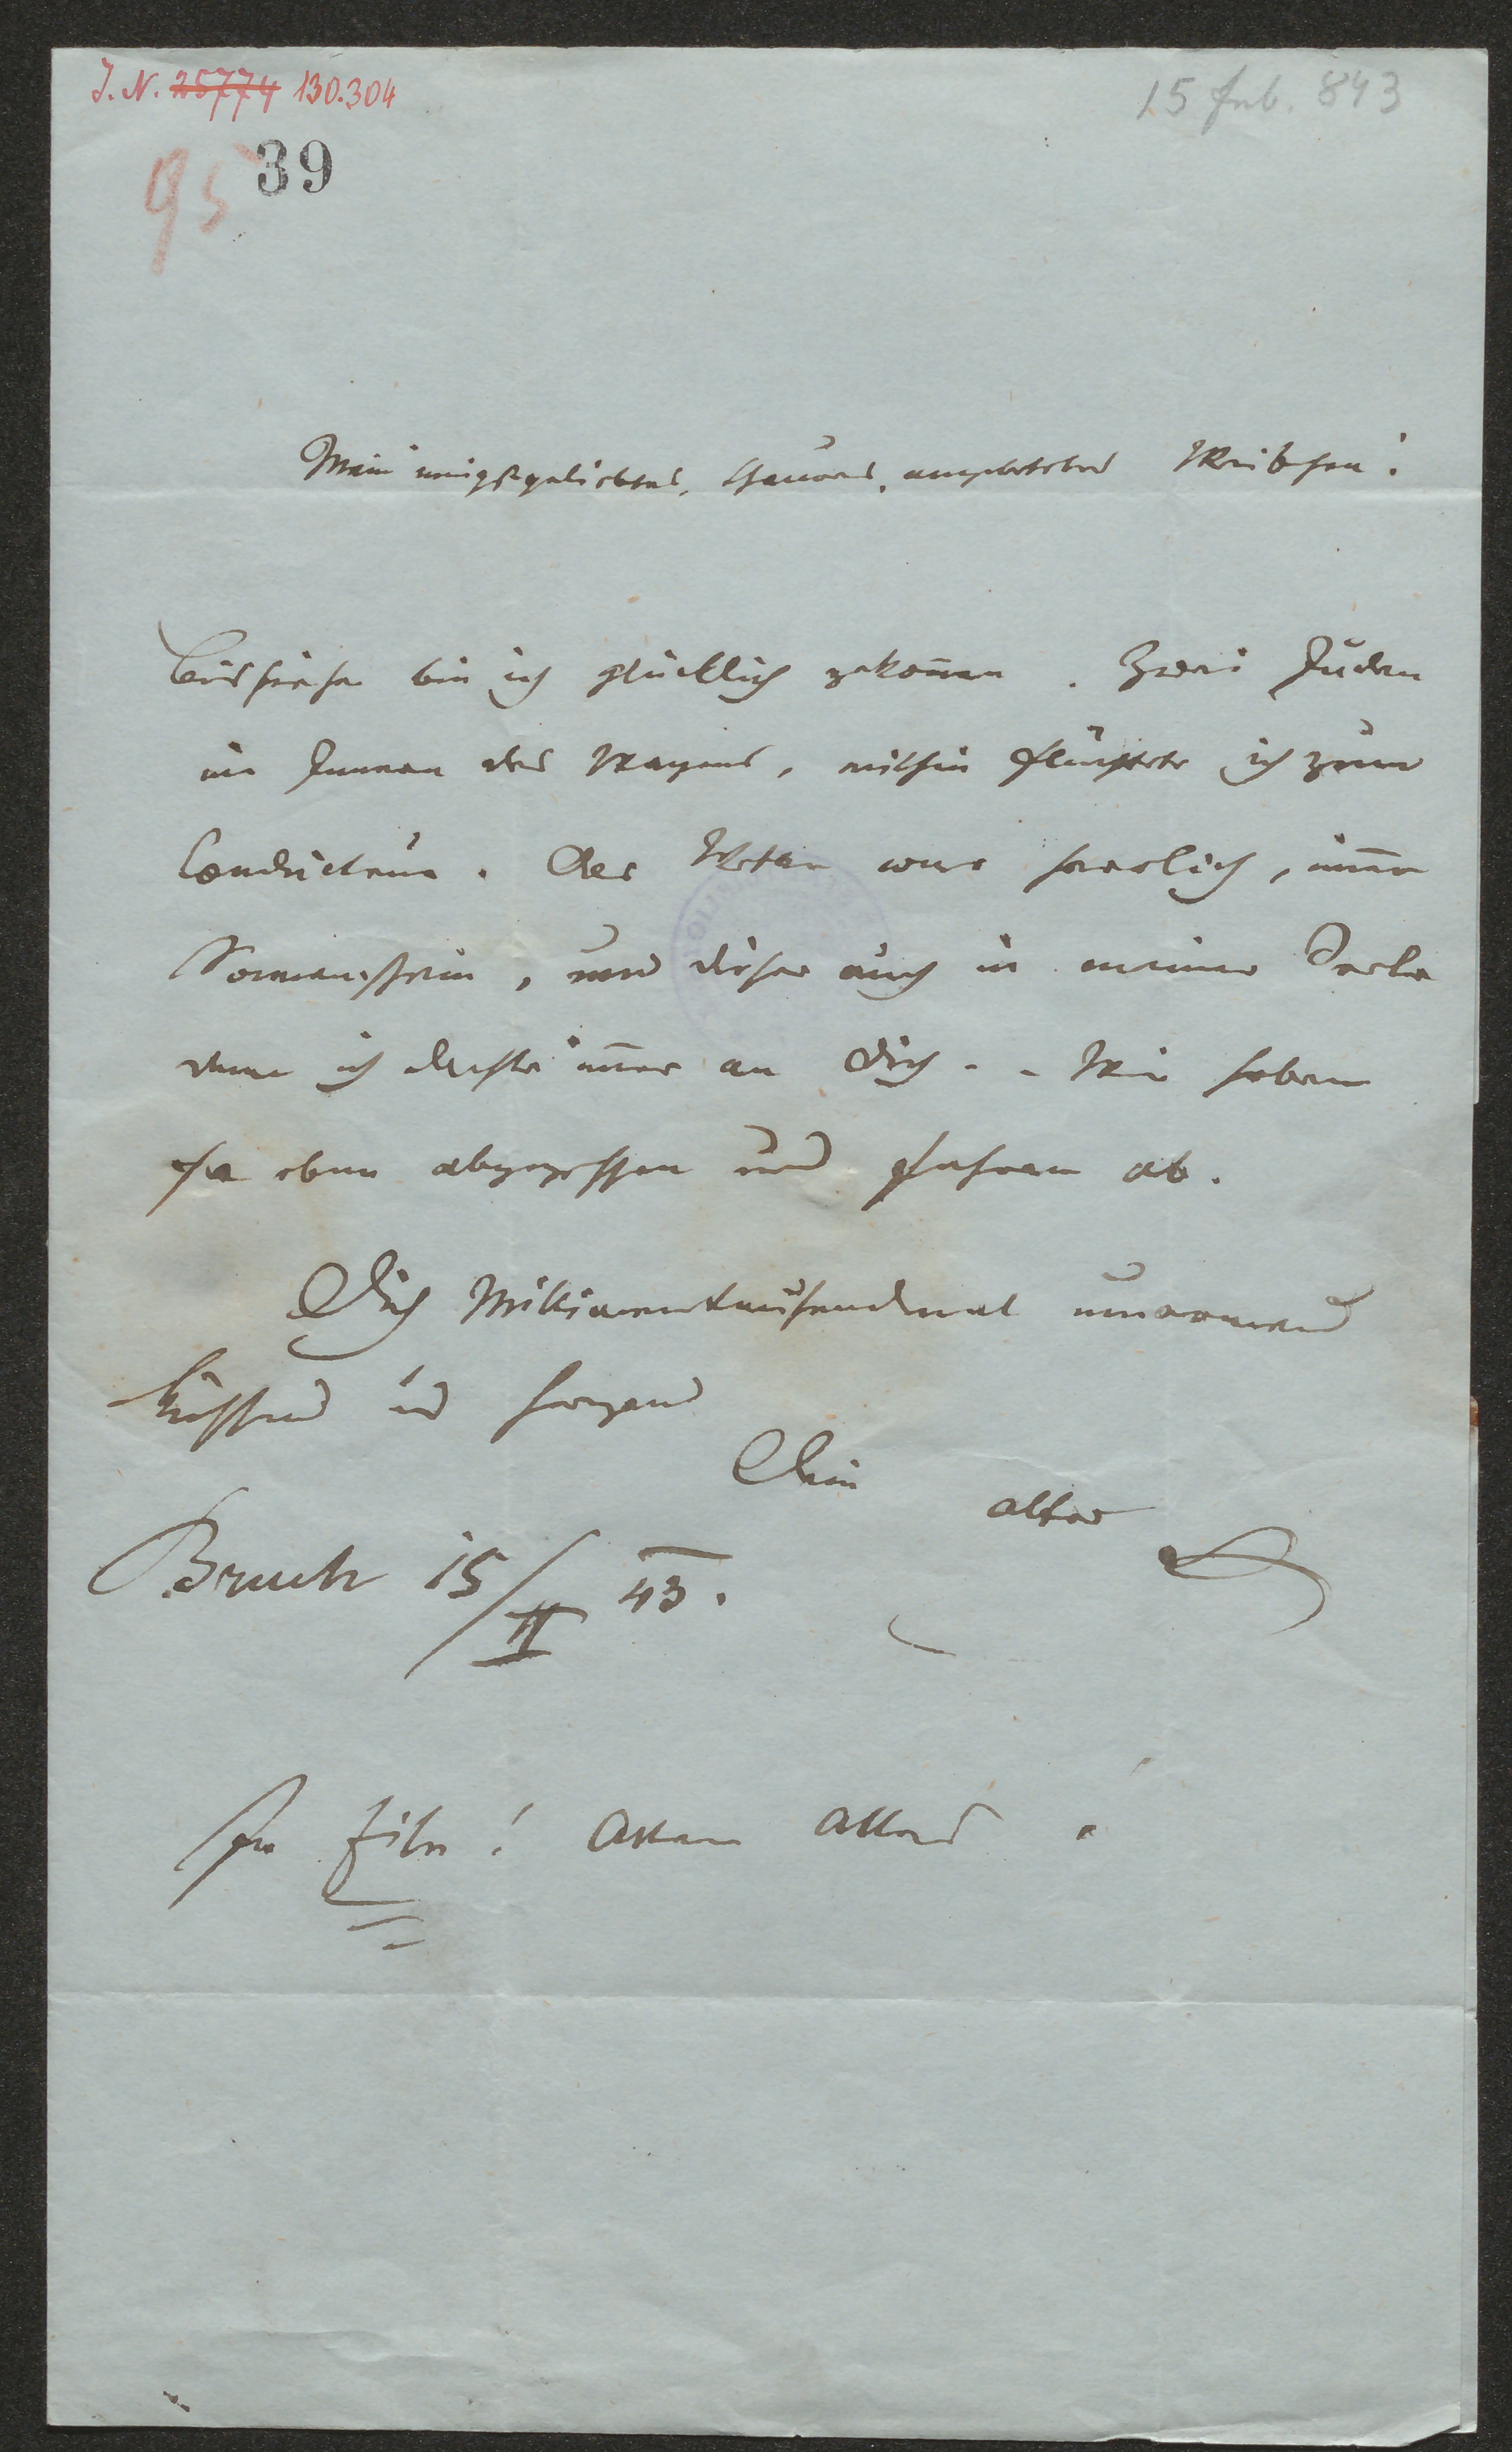 J. N. 25774 130.304
15 Feb. 843
95 39
Mein innigstgeliebtes, theures, angebetetes Weibchen!
Bis hieher bin ich glücklich gekommen. Zwei Juden
im Innern des Wagens, mithin flüchtete ich zum
Conducteur. Das Wetter war herrlich, immer
Sonnenschein, und dieser auch in meiner Seele
denn ich dachte immer an Dich. - Wir haben
so eben abgegessen und fahren ab.
Dich Millionentausendmal umarmend
küssend und herzend
Dein
alter
Bruck 15/II 43.
In Eile! Allen alles